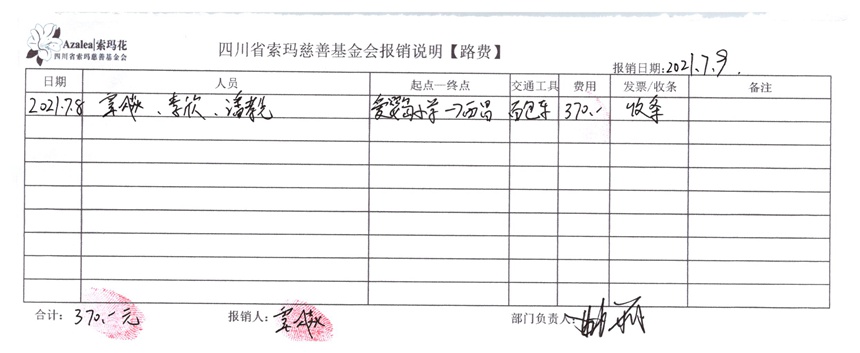 Azalea|索玛花
四川省索玛慈善基金会
四川省索玛慈善基金会报销说明【路费】
报销日期:2021.7.9.
日期 人员 起点—终点 交通工具 费用 发票/收条 备注
2021.7.8 、李欣、潘 小学→西昌 面包车 370.- 收条
合计: 370.-元 报销人: 部门负责人: